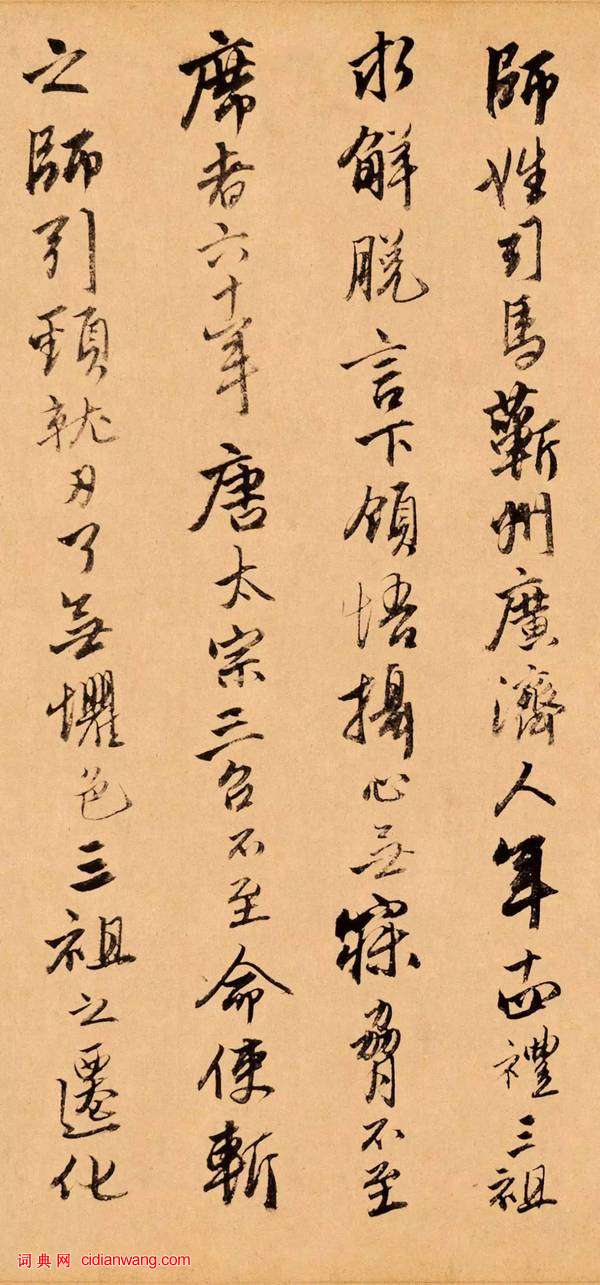 師姓司馬蘄州廣濟人年十四禮三祖
求解脱言下領悟攝心無寐脅不至
席者六十年唐太宗三召不至命使斬
之師引頸就刃了無懼色三祖之遷化
词典网 cidianwang.com